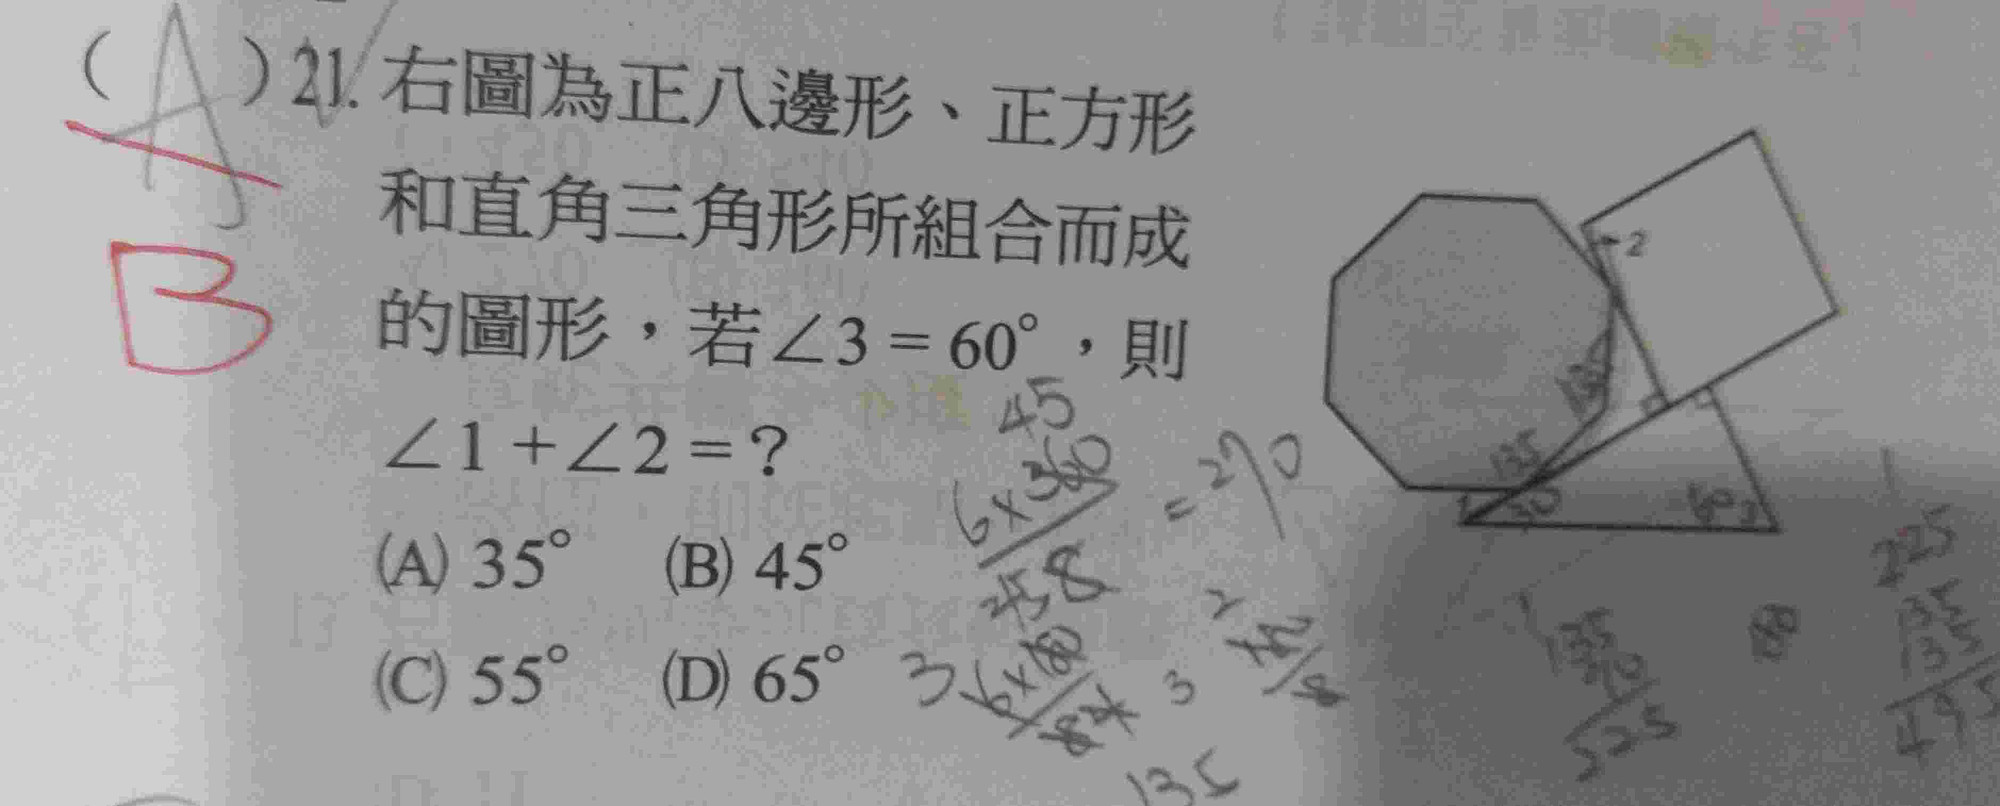 (A)21.右圖為正八邊形、正方形
B
和直角三角形所組合而成
的圖形，若∠3=60°，則
∠1+∠2=?
(A) 35° (B) 45°
(C) 55° (D) 65°
2
135
135
30
60
3
45
6×360
8
=270
6×180
3
3
2
8
135
135
180
225
135
135
495